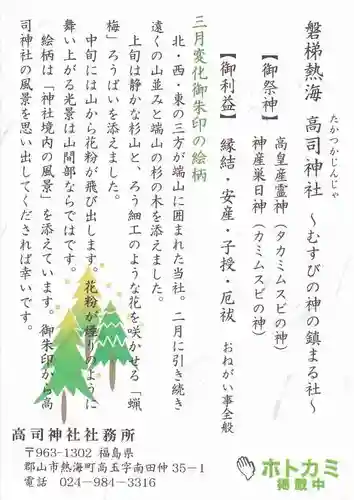 磐梯熱海 高司神社 ～むすびの神の鎮まる社～
たかつかじんじゃ
【御祭神】 高皇産霊神(タカミムスビの神)
神産巣日神(カミムスビの神)
【御利益】 縁結・安産・子授・厄祓 おねがい事全般
三月変化御朱印の絵柄
北・西・東の三方が端山に囲まれた当社。二月に引き続き
遠くの山並みと端山の杉の木を添えました。
上旬は静かな杉山と、ろう細工のような花を咲かせる「蝋
梅」ろうばいを添えました。
中旬には山から花粉が飛び出します。花粉が煙りのように
舞い上がる光景は山間部ならではです。
絵柄は「神社境内の風景」を添えています。御朱印から高
司神社の風景を思い出してくだされば幸いです。
高司神社社務所
〒963-1302 福島県
郡山市熱海町高玉字南田仲35－1
電話 024-984-3316
ホトカミ
掲載中